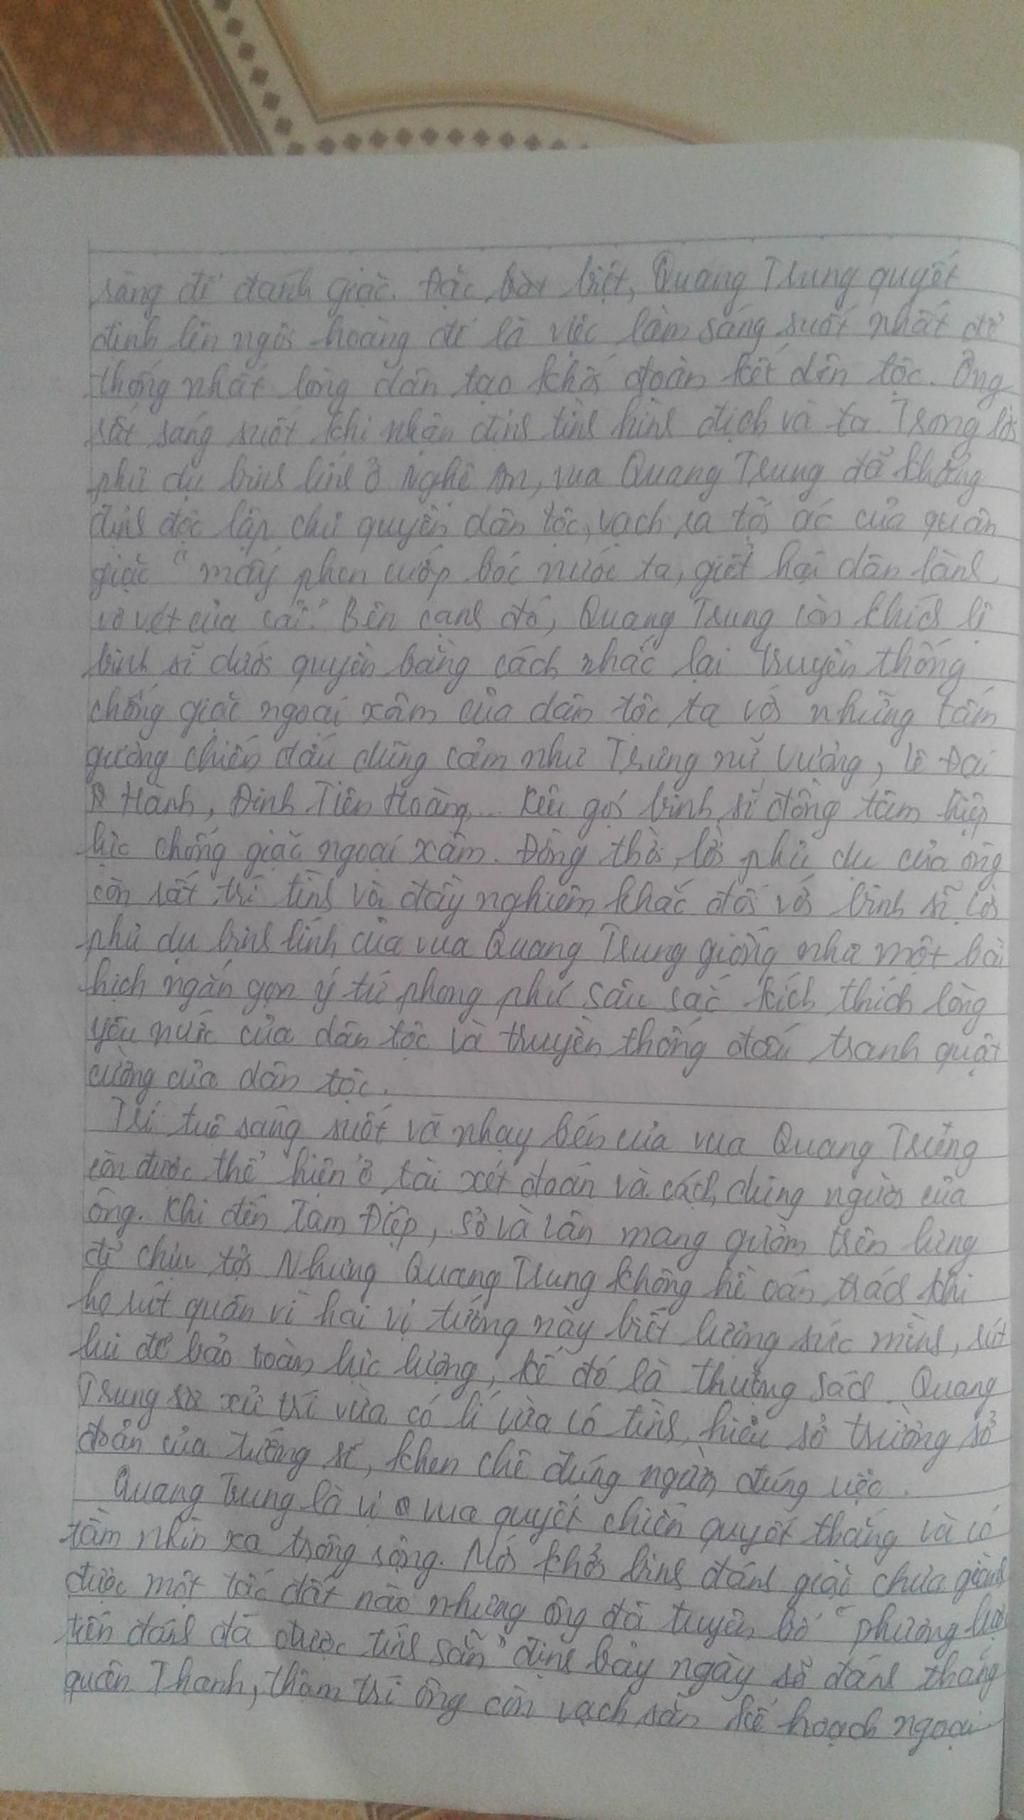 sàng để đánh giặc. Đặc biệt, Quang Trung quyết
định lên ngôi hoàng đế là việc làm sáng suốt nhất để
thống nhất lòng dân tạo khối đoàn kết dân tộc. Ông
rất sáng suốt khi nhận định tình hình địch và ta. Trong lời
phủ dụ binh lính ở Nghệ An, vua Quang Trung đã khẳng
định độc lập chủ quyền dân tộc, vạch ra tội ác của quân
giặc "mấy phen cướp bóc nước ta, giết hại dân lành,
vơ vét của cải." Bên cạnh đó, Quang Trung còn khích lệ
binh sĩ dưới quyền bằng cách nhắc lại truyền thống
chống giặc ngoại xâm của dân tộc ta với những tấm
gương chiến đấu dũng cảm như Trưng nữ Vương, Lê Đại
Hành, Đinh Tiên Hoàng... Kêu gọi binh sĩ đồng tâm hiệp
lực chống giặc ngoại xâm. Đồng thời, lời phủ dụ của ông
còn rất trí tình và đầy nghiêm khắc đối với binh sĩ. Lời
phủ dụ binh lính của vua Quang Trung giống như một bài
hịch ngắn gọn ý tứ phong phú sâu sắc kích thích lòng
yêu nước của dân tộc và truyền thống đấu tranh quật
cường của dân tộc.
Trí tuệ sáng suốt và nhạy bén của vua Quang Trung
còn được thể hiện ở tài xét đoán và cách dùng người của
ông. Khi đến Tam Điệp, Sở và Lân mang gươm trên lưng
để chịu tội. Nhưng Quang Trung không hề oán trách khi
họ rút quân vì hai vị tướng này biết lượng sức mình, rút
lui để bảo toàn lực lượng, kế đó là thượng sách. Quang
Trung xử trí vừa có lí vừa có tình, hiểu sở trường sở
đoản của tướng sĩ, khen chê đúng người đúng việc.
Quang Trung là vị vua quyết chiến quyết thắng và có
tầm nhìn xa trông rộng. Mới khởi binh đánh giặc chưa giành
được một tấc đất nào nhưng ông đã tuyên bố "phương lược
tiến đánh đã được tính sẵn" định bảy ngày sẽ đánh thắng
quân Thanh, thậm trí ông còn vạch sẵn kế hoạch ngoại